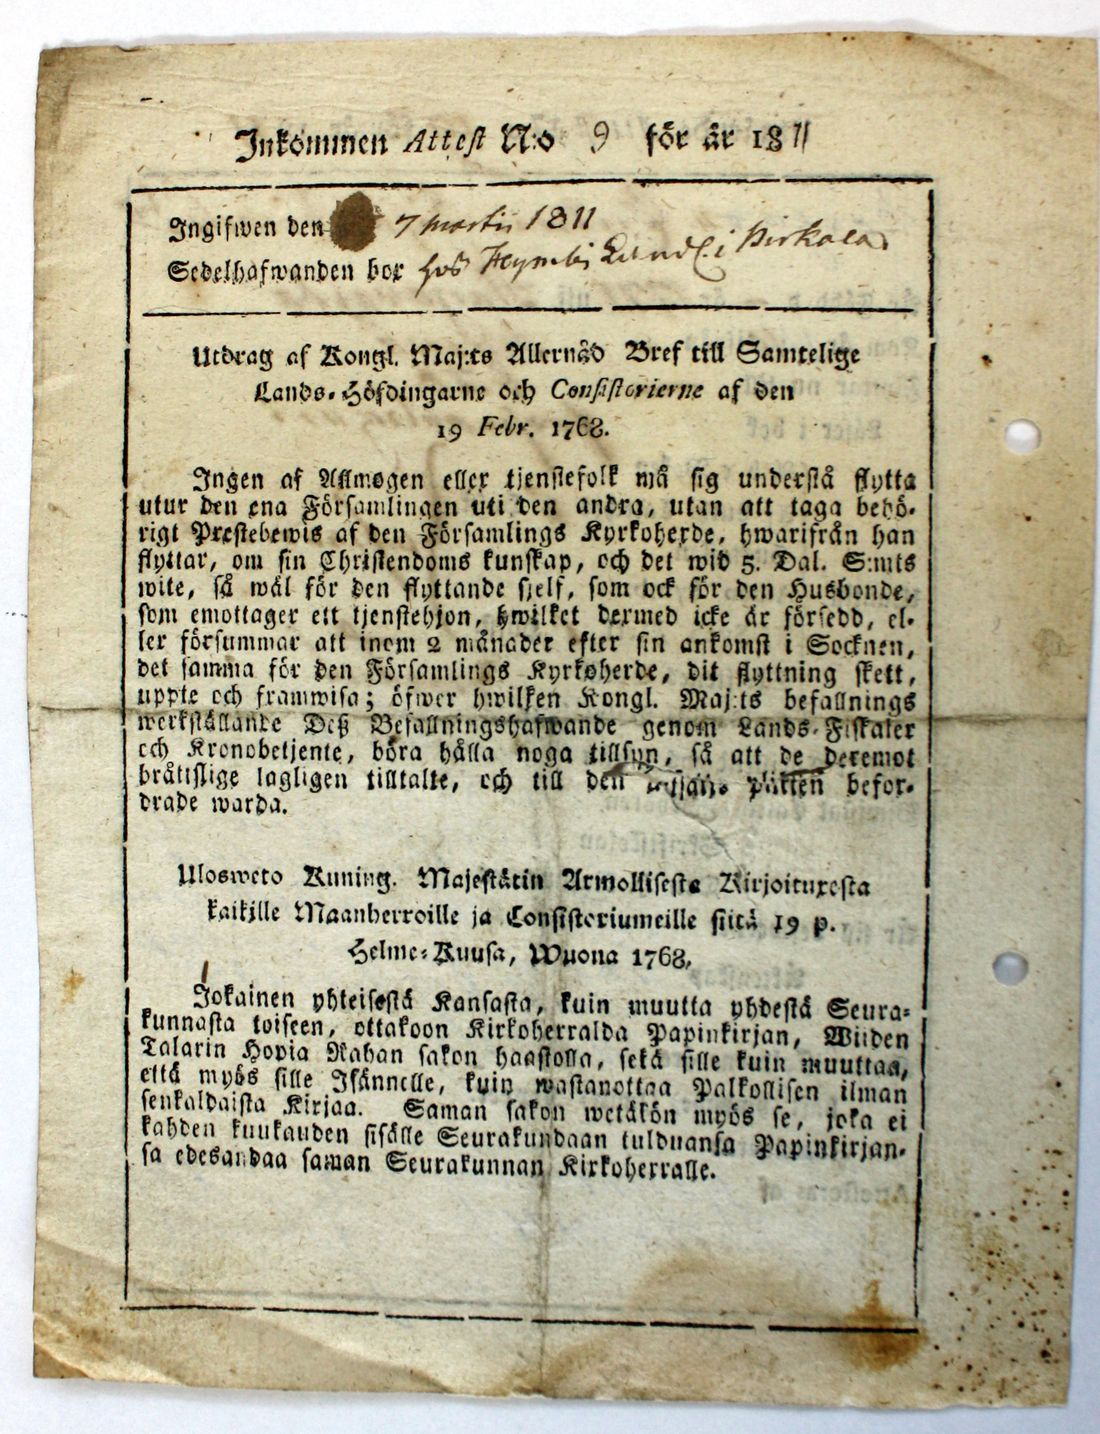 Inkommen Attest N:o 9 för år 1811
Ingifwen den 7 martii 1811
Sedelhafwanden bor hos Landb. i Pirkala
Utdrag af Kongl. Maj:ts Allernåd Bref till Samtelige
Lands-Höfdingarne och Consistorierne af den
19 Febr. 1768.
Ingen af Allmogen eller tjenstefolk må sig understå flytta
utur den ena Församlingen uti den andra, utan att taga behö-
rigt Prestebewis af den Församlings Kyrkoherde, hwarifrån han
flyttar, om sin Christendoms kunskap, och det wid 5. Dal. S:mts
wite, så wäl för den flyttande sjelf, som ock för den Husbonde,
som emottager ett tjenstehjon, hwilket dermed icke är försedd, el-
ler försummar att inom 2 månader efter sin ankomst i Socknen,
det samma för den Församlings Kyrkoherde, dit flyttning skett,
uppte och framwisa; öfwer hwilken Kongl. Maj:ts befallnings
werkställande Deß Befallningshafwande genom Lands-Fiskaler
och Kronobetjente, böra hålla noga tillsyn, så att de deremot
bråttslige lagligen tilltalte, och till den plikten befor-
drade warda.
Ulosweto Kuning. Majestätin Armollisesta Kirjoituxesta
kaikille Maanherroille ja Consistoriumeille siitä 19 p.
Helme-Kuusa, Wuona 1768.
Jokainen yhteisestä Kansasta, kuin muutta yhdestä Seura-
kunnasta toiseen, ottakoon Kirkoherralda Papinkirjan, Wiiden
Talarin Hopia Rahan sakon haastolla, sekä sille kuin muuttaa,
että myös sille Isännelle, kuin wastanottaa Palkollisen ilman
senkaldaista Kirjaa. Saman sakon wetäkön myös se, joka ei
kahden kuukauden sisälle Seurakundaan tulduansa Papinkirjan-
sa edesandaa saman Seurakunnan Kirkoherralle.